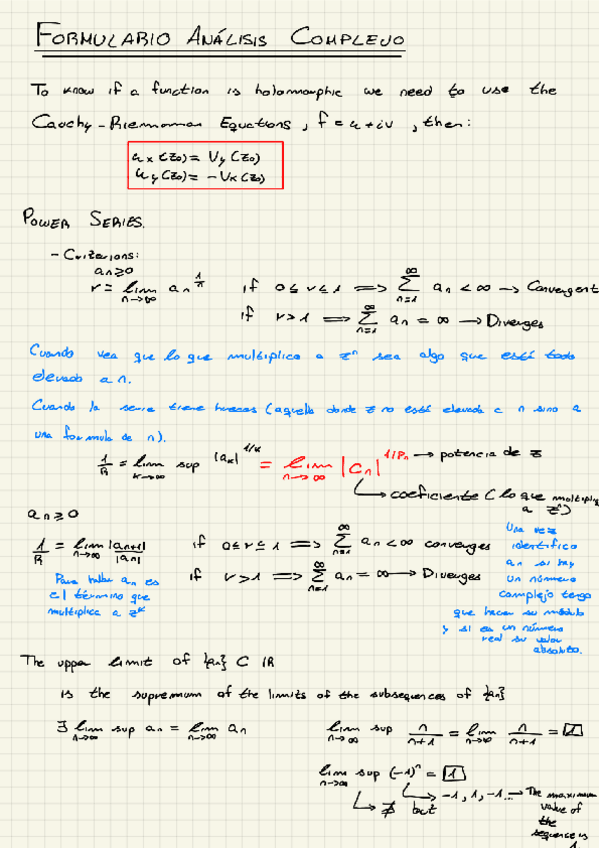 FORMULARIO ANÁLISIS COMPLEJO
To know if a function is holomorphic we need to use the
Cauchy-Riemman Equations, f = u+iv, then:
ux(z0) = Vy(z0)
uy(z0) = -Vx(z0)
POWER SERIES.
- Criterions:
an ≥ 0
r = lim n→∞ an^1/n if 0 ≤ r ≤ 1 ⟹ ∑ n=1 ∞ an < ∞ → Convergent
if r > 1 ⟹ ∑ n=1 ∞ an = ∞ → Diverges
Cuando vea que lo que multiplica a z^n sea algo que está todo
elevado a n.
Cuando la serie tiene huecos (aquella donde z no está elevada a n sino a
una formula de n).
1/R = lim sup k→∞ |ak|^1/k = lim n→∞ |cn|^1/Pn → potencia de z
coeficiente (lo que multiplica
a z^n)
an ≥ 0
1/R = lim n→∞ |an+1|/|an| if 0 ≤ r ≤ 1 ⟹ ∑ n=1 ∞ an < ∞ converges
if r > 1 ⟹ ∑ n=1 ∞ an = ∞ → Diverges
Para hallar an es
el término que
multiplica a z^k
Una vez
identifico
an si hay
un número
complejo tengo
que hacer su módulo
y si es un número
real su valor
absoluto.
The upper limit of {an} C IR
is the supremum of the limits of the subsequences of {an}
∃ lim n→∞ sup an = lim n→∞ an lim n→∞ sup n/n+1 = lim n→∞ n/n+1 = 1
lim n→∞ sup (-1)^n = 1
∄ but -1, 1, -1... → The maximum
value of
the
sequence is
1